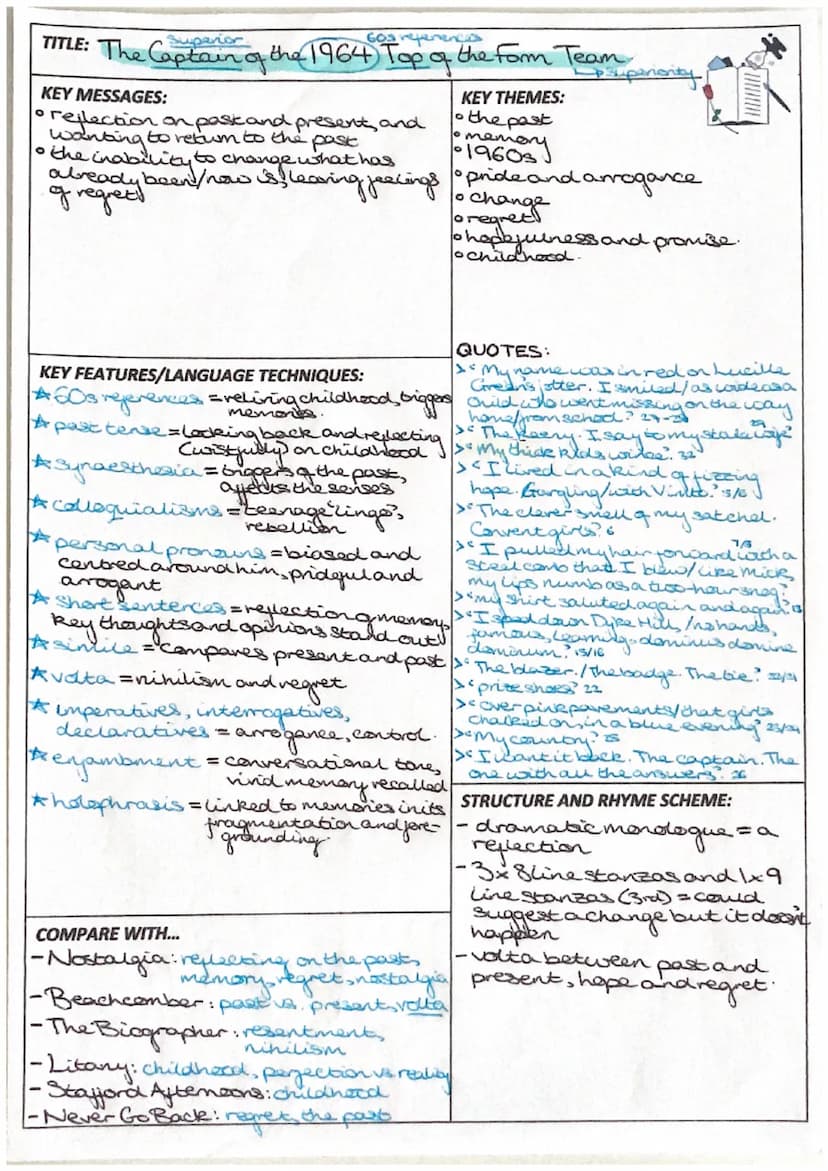 superior
60s references
TITLE: The Captain of the 1964 Top of the Form Team
↳ superiority
KEY MESSAGES:
• reflection on past and present, and
wanting to return to the past
• the inability to change what has
already been/now is, leaving feelings
of regret
KEY THEMES:
• the past
• memory
• 1960s
• pride and arrogance
• change
• regret
• hopefulness and promise.
• childhood.
KEY FEATURES/LANGUAGE TECHNIQUES:
☆ 60s references = reliving childhood, triggers
memories.
☆ past tense = looking back and reflecting
(wistfully) on childhood
☆ synaesthesia = triggers of the past,
affects the senses
☆ colloquialisms = teenage 'lingo',
rebellion
☆ personal pronouns = biased and
centred around him, prideful and
arrogant
☆ short sentences = reflection of memory,
key thoughts and opinions stand out
☆ simile = compares present and past
☆ volta = nihilism and regret
☆ imperatives, interrogatives,
declaratives = arrogance, control.
☆ enjambment = conversational tone,
vivid memory recalled
☆ holophrasis = linked to memories in its
fragmentation and fore-
grounding.
QUOTES:
> 'My name was in red on Lucille
Green's jotter. I smiled/as wide as a
child who went missing on the way
home/from school.' 27-29
> 'The Keeny. I say to my stale wife'
> 'My thick kids wince.' 32
> 'I lived in a kind of fizzing
hope. Gargling/with Vimto.' 5/6
> 'The clever smell of my satchel.
Convent girls.' 6
> 'I pulled my hair forward with a
steel comb that I blew/like Mick,
my lips numb as a two-hour snog.' 7/8
> 'my shirt saluted again and again.' 13
> 'I sped down Dyke Hill,/no hands,
famous, learning - dominus domine
dominum.' 15/16
> 'The blazer./The badge. The tie.'
> 'prize shoes' 22
> 'over pink pavements/that girls
chalked on, in a blue evening' 23/24
> 'My country.' 25
> 'I want it back. The captain. The
one with all the answers'. 26
COMPARE WITH...
- Nostalgia: reflecting on the past,
memory, regret, nostalgia
- Beachcomber: past vs. present, volta
- The Biographer: resentment,
nihilism
- Litany: childhood, perfection vs reality
- Stafford Afternoons: childhood
- Never Go Back: regret, the past
STRUCTURE AND RHYME SCHEME:
- dramatic monologue = a
reflection
- 3 x 8 line stanzas and 1 x 9
line stanzas (3rd) = could
suggest a change but it doesn't
happen
- volta between past and
present, hope and regret.